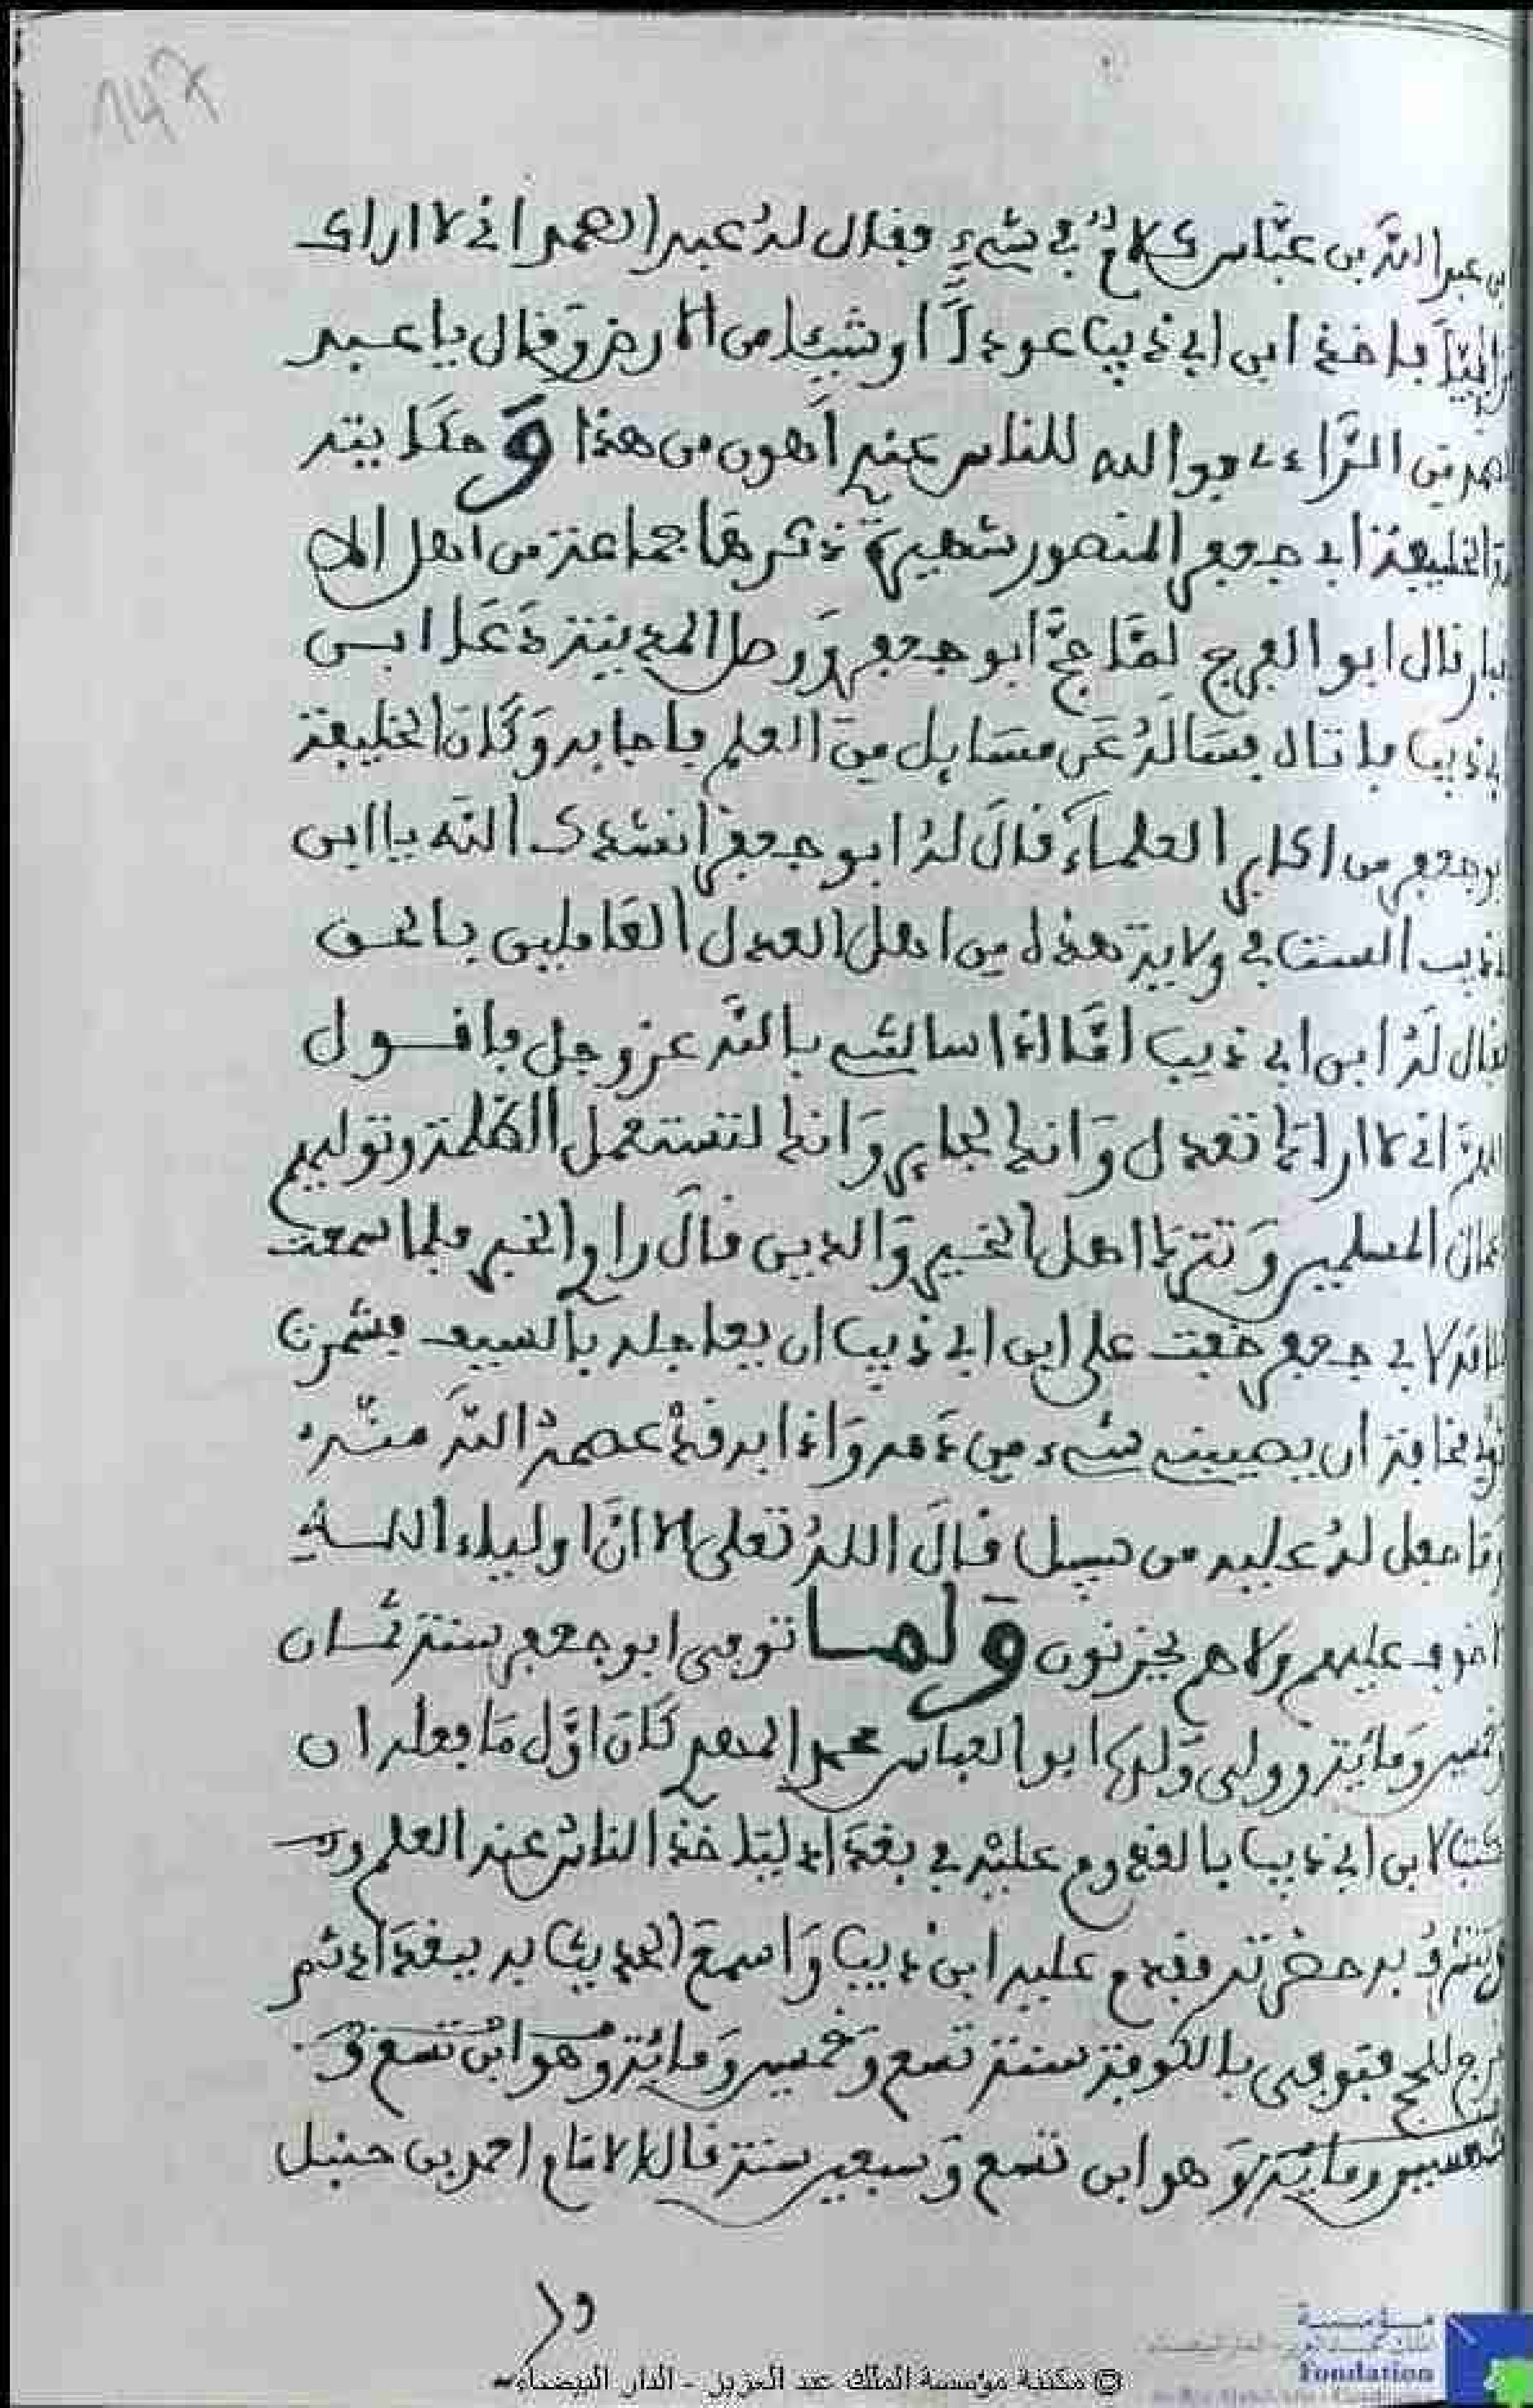 147
بن عبد الله بن عباس كلام في شيء فقال له عبد الصمد اني لا اراك
مرائيا فاخذ ابن ابي ذيب عودا او شيئا من الارض وقال يا عبد
الصمد من اراءي فوالله للناس عندي أهون من هذا وحكايته
مع الخليفة ابي جعفر المنصور شهيرة ذكرها جماعة من اهل الا
خبار قال ابو الفرج لمّا حجّ ابو جعفر ودخل المدينة دَعَا ابن
ابي ذيب فاتاه فسَالَهُ عَن مسَايل منَ العلم فاجابه وَكَانَ الخليفة
ابو جعفر من اكابر العلماء قالَ لهُ ابو جعفر انشدك الله يا ابن
ابي ذيب الست في ولايتي هذه من اهل العدل القايلين بالحق
فقال لَهُ ابن ابي ذيب امَّا اذا سالتني بالله عز وجل فاقول
اللهم اني لا اراك تعدل وَانك لجاير وَانك لتستعمل الظلمة وتوليهم
اعمال المسلمين وَتترك اهل الخير وَالدين قالَ راوي الخبر فلما سمعت
كلامه لابي جعفر خفت على ابن ابي ذيب ان يعاجله بالسيف فشمرت
ثوبي مخافة ان يصيبني شيء من دَمه وَاذا به قدْ عصمهُ اللهَ منه
ومَا جعل لهُ عليه من سبيل قالَ اللهُ تعلى الا انَّ اولياء الله
لا خوف عليهم ولا هم يحزنون وَلمّا توفى ابو جعفر سنة ثمان
وخمسين وَمائة وولى وَلدها ابو العباس محمد المهدي كَانَ اوَّل مَا فعله ان
كتب لابن ابي ذيب بالقدوم عليْه في بغدَاد ليَاخذ الناسُ عنه العلم و
تشرفُ به حضرته فقدم عليه ابن ذيب وَاسمعَ الحديث به ببغدَاد ثم
خرج للحج فتوفى بالكوفة سنة تسع وَخمسين وَمائة وَهو ابن تسع وَ
خمسين ومائة وَهو ابن تسع وَسبعين سنة قال الامَام احمد بن حنبل
© مكتبة مؤسسة الملك عبد العزيز - الدار البيضاء
مؤسسة
Fondation